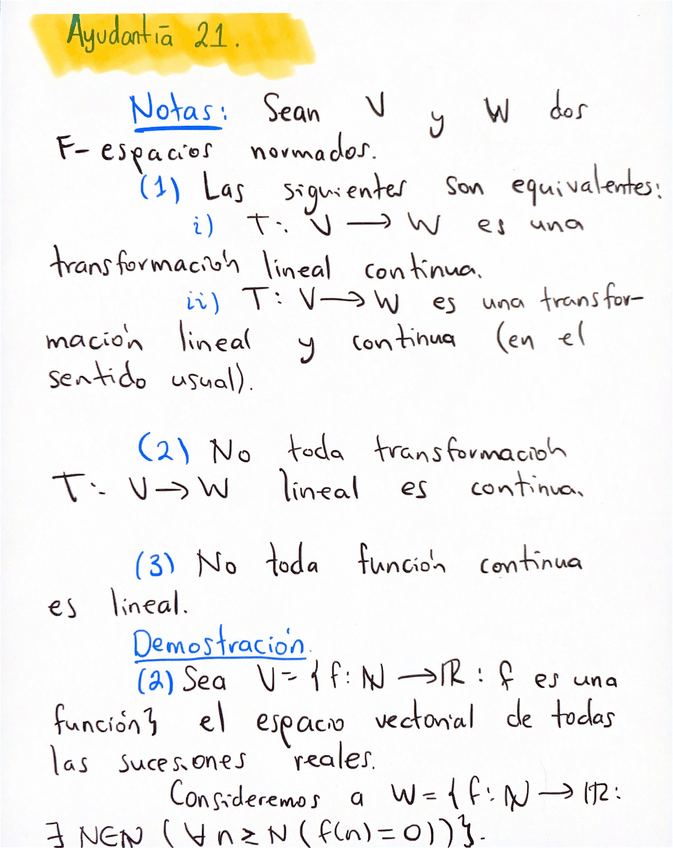 Ayudantía 21.
Notas: Sean V y W dos
F-espacios normados.
(1) Las siguientes son equivalentes:
i) T: V → W es una
transformación lineal continua.
ii) T: V → W es una transfor-
mación lineal y continua (en el
sentido usual).
(2) No toda transformación
T: V → W lineal es continua.
(3) No toda función continua
es lineal.
Demostración.
(2) Sea V = {f: ℕ → ℝ : f es una
función} el espacio vectorial de todas
las sucesiones reales.
Consideremos a W = {f: ℕ → ℝ:
∃ N∈ℕ (∀ n ≥ N (f(n) = 0))}.